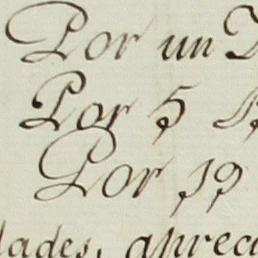 Por un
Por 5
Por 19
lades, aprec